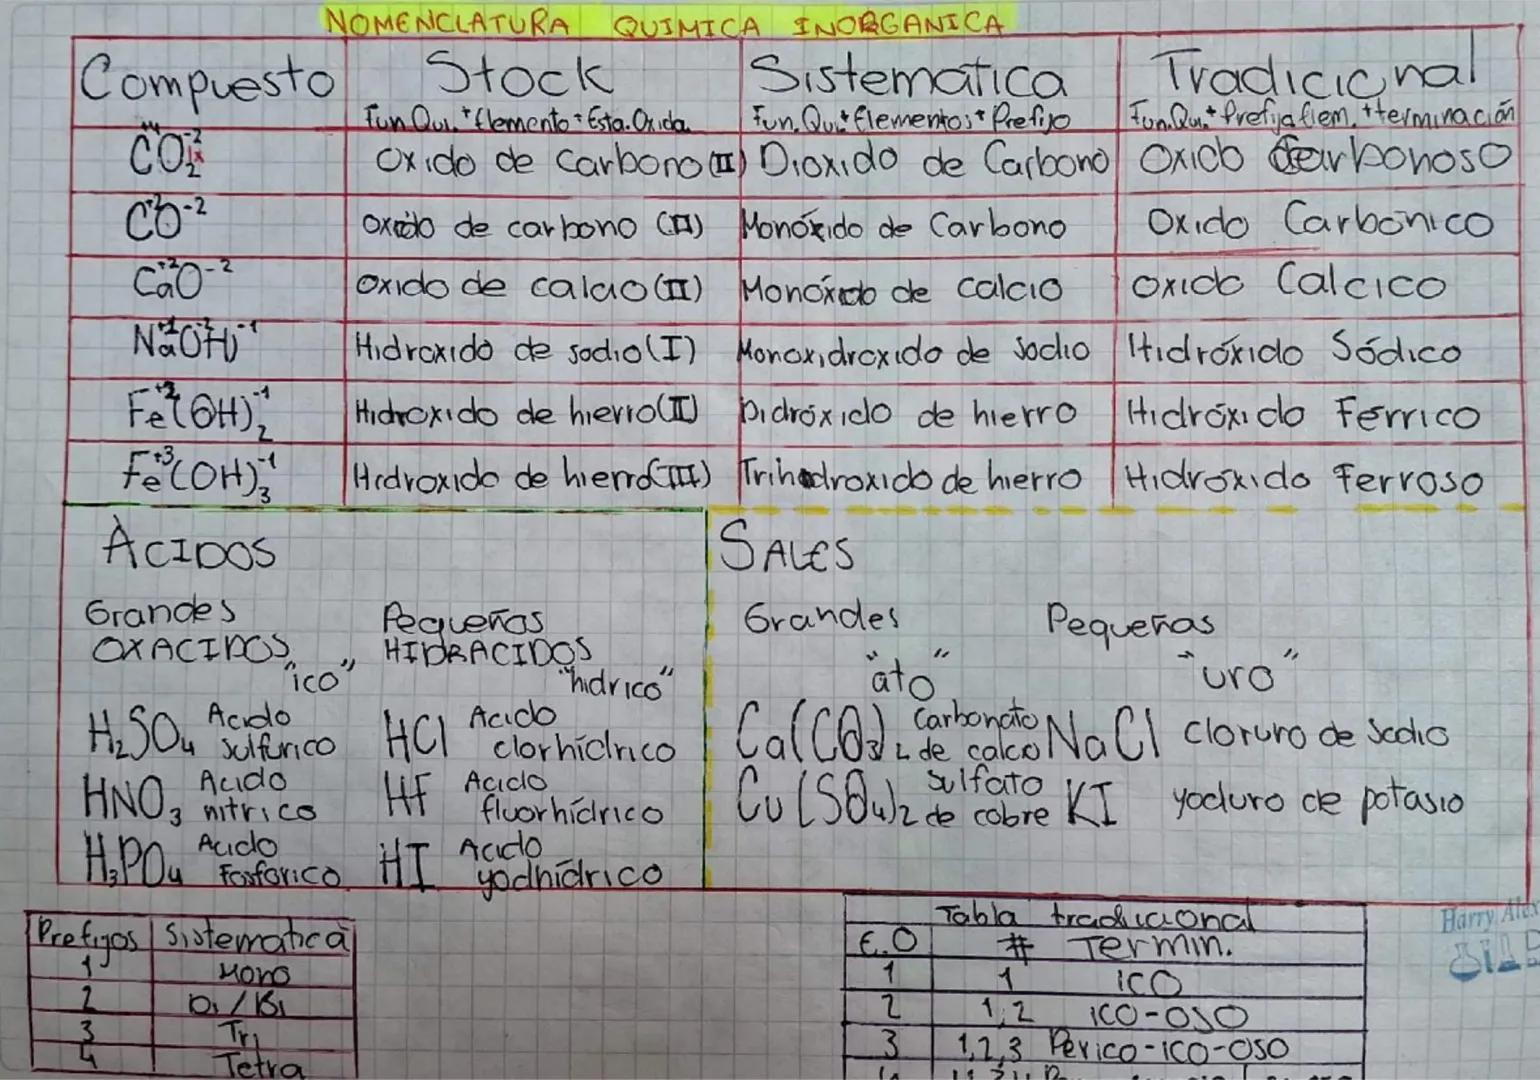 NOMENCLATURA QUIMICA INORGANICA
Compuesto Stock Sistematica Tradicional
Fun. Qui. + Elemento + Esta. Oxida. Fun. Qui + Elementos + Prefijo Fun. Qu. + Prefijo Elem. + terminación
C+4O2-2 Oxido de carbono (II) Dioxido de Carbono Oxido Carbonoso
C+2O-2 Oxido de carbono (II) Monóxido de Carbono Oxido Carbónico
Ca+2O-2 Oxido de calcio (II) Monóxido de calcio Oxido Calcico
Na+1(OH)-1 Hidroxido de sodio (I) Monoxidroxido de sodio Hidróxido Sódico
Fe+2(OH)2-1 Hidroxido de hierro (II) Didróxido de hierro Hidróxido Férrico
Fe+3(OH)3-1 Hidroxido de hierro (III) Trihidroxido de hierro Hidróxido Ferroso
ÀCIDOS SALES
Grandes Pequeñas Grandes Pequeñas
OXACIDOS HIDRACIDOS
"ico" "hidrico" "ato" "uro"
H2SO4 Acido sulfurico HCl Acido clorhídrico Ca(CO3)2 Carbonato de calcio NaCl cloruro de Sodio
HNO3 Acido nitrico HF Acido fluorhídrico Cu(SO4)2 Sulfato de cobre KI yoduro de potasio
H3PO4 Acido Fosforico HI Acido yodhídrico
Prefijos Sistematica
1 Mono
2 Di/Bi
3 Tri
4 Tetra
Tabla tradicional
E.O # Termin.
1 1 ico
2 1,2 ico-oso
3 1,2,3 Perico-ico-oso
Harry